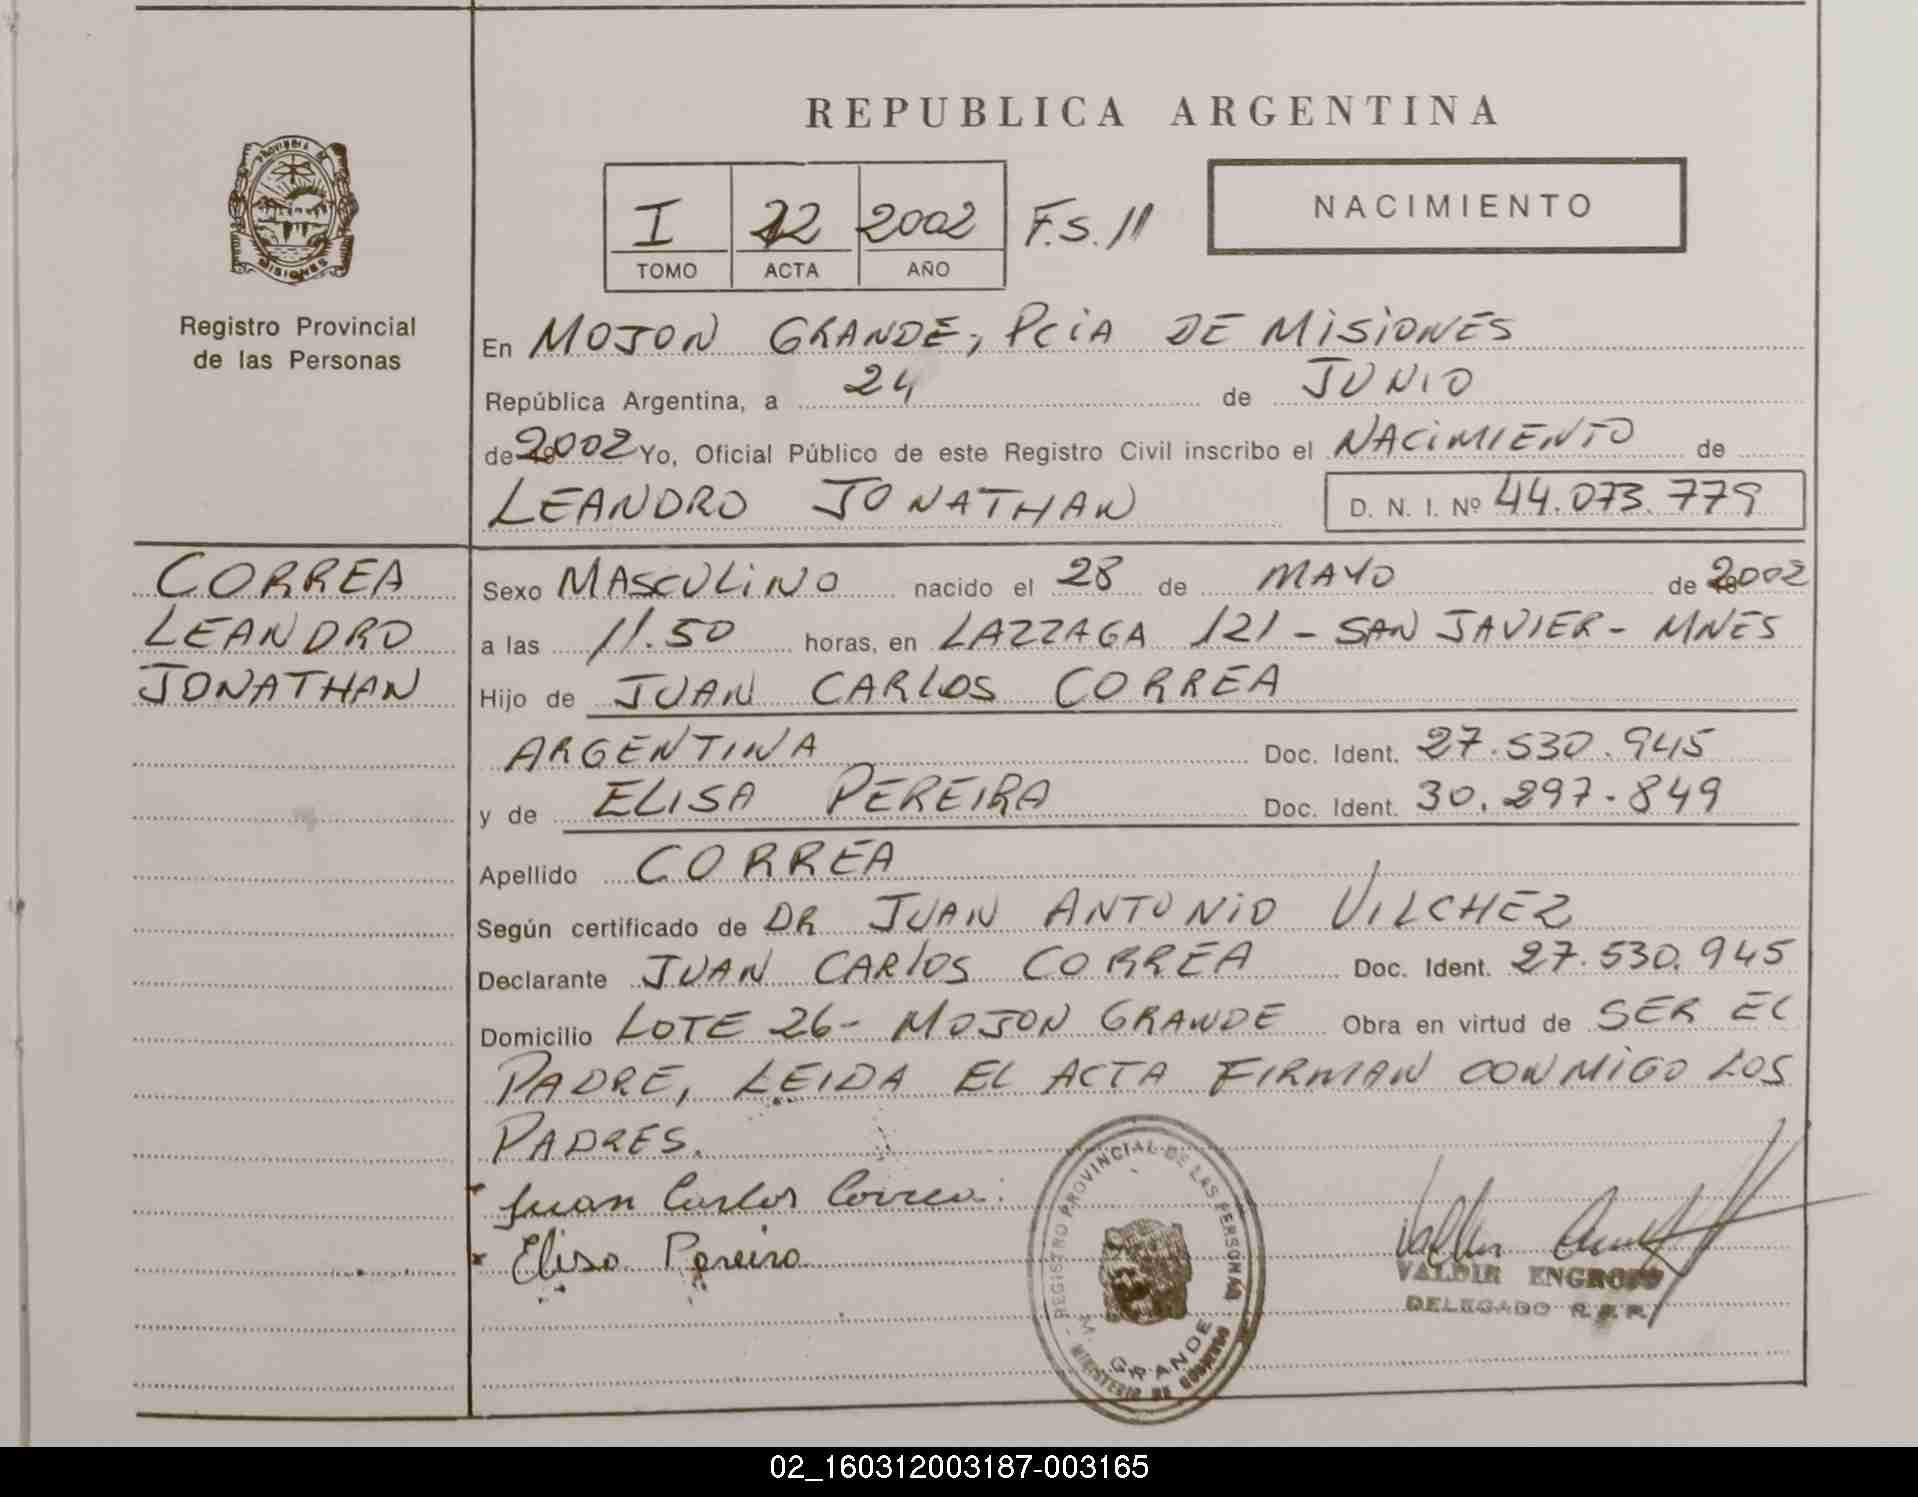 REPUBLICA ARGENTINA
PROVINCIA DE MISIONES
Registro Provincial
de las Personas
I 22 2002 F.S. 11
TOMO ACTA AÑO
NACIMIENTO
En MOJON GRANDE, PCIA DE MISIONES
República Argentina, a 24 de JUNIO
de 2002 Yo, Oficial Público de este Registro Civil inscribo el NACIMIENTO de
LEANDRO JONATHAN D. N. I. Nº 44.073.779
CORREA
LEANDRO
JONATHAN
Sexo MASCULINO nacido el 28 de MAYO de 2002
a las 11.50 horas, en LAZZAGA 121 - SAN JAVIER - MNES
Hijo de JUAN CARLOS CORREA
ARGENTINA Doc. Ident. 27.530.945
y de ELISA PEREIRA Doc. Ident. 30.297.849
Apellido CORREA
Según certificado de DR JUAN ANTONIO VILCHEZ
Declarante JUAN CARLOS CORREA Doc. Ident. 27.530.945
Domicilio LOTE 26 - MOJON GRANDE Obra en virtud de SER EL
PADRE, LEIDA EL ACTA FIRMAN CONMIGO LOS
PADRES.
Juan Carlos Correa
Elisa Pereira
REGISTRO PROVINCIAL DE LAS PERSONAS
M. GRANDE
MINISTERIO DE GOBIERNO
VALDIR ENGROFF
DELEGADO R.P.P.
02_160312003187-003165